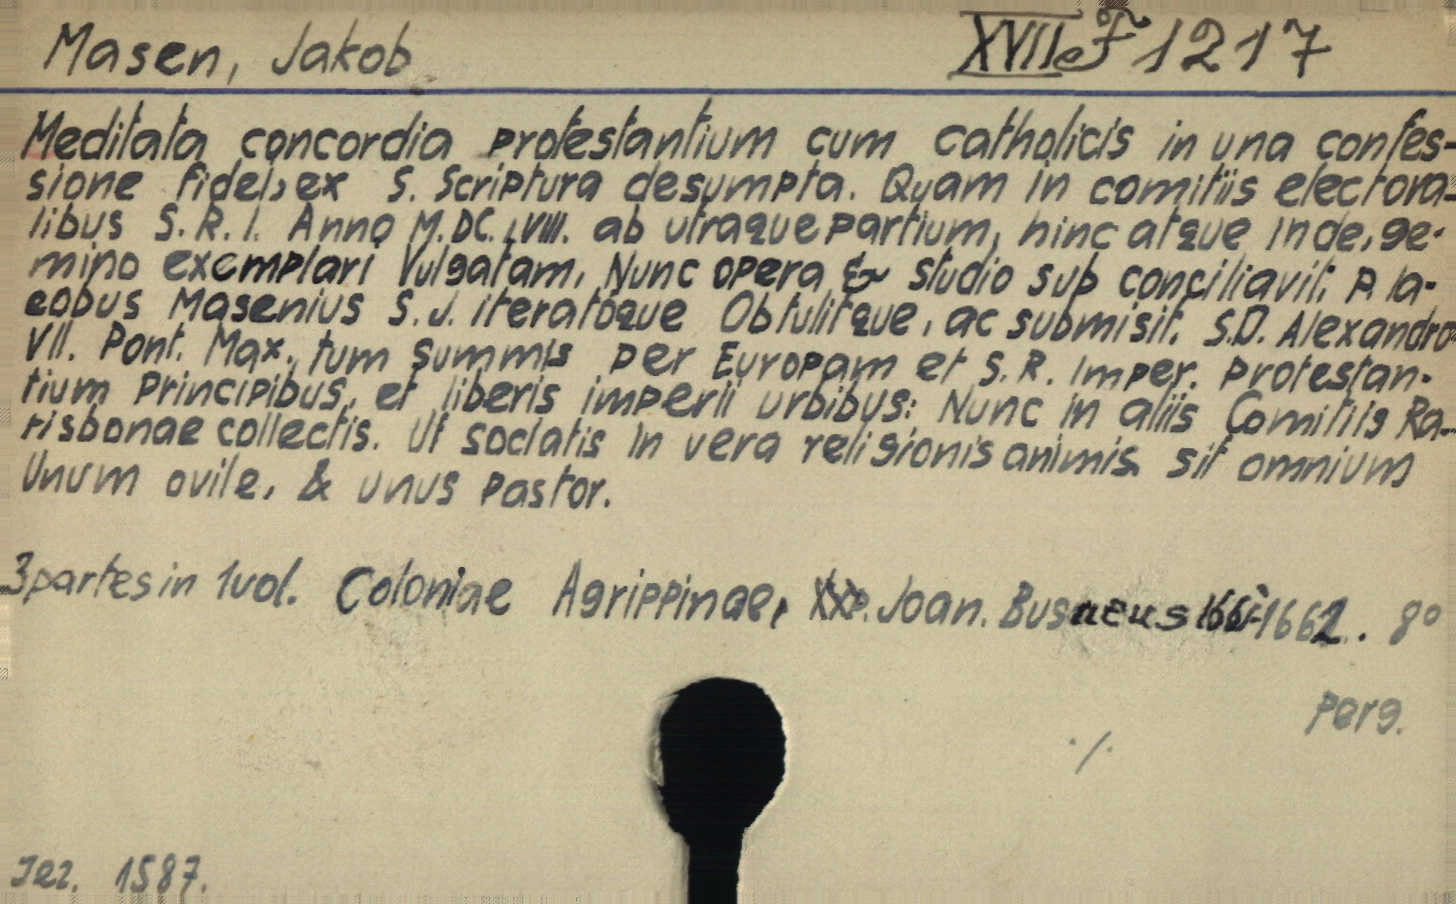 Masen, Jakob XVIIe F 1217
Meditata concordia protestantium cum catholicis in una confes-
sione fidei, ex S. Scriptura desumpta. Quam in comitiis electora-
libus S. R. I. Anno M.DC.LVIII. ab utraque partium, hinc atque inde, ge-
mino exemplari vulgatam, Nunc opera & studio sub conciliavit: P. Ia-
cobus Masenius S. J. iteratoque Obtulitque, ac submisit. S.D. Alexandro
VII. Pont. Max., tum summis per Europam et S. R. Imper. Protestan-
tium Principibus, et liberis imperii urbibus: Nunc in aliis Comitiis Ra-
tisbonae collectis. Ut sociatis in vera religionis animis sit omnium
Unum ovile, & unus Pastor.
3 partes in 1 vol. Coloniae Agrippinae, Joan. Busaeus 1661-1662. 8°
Perg.
./.
Jez. 1587.